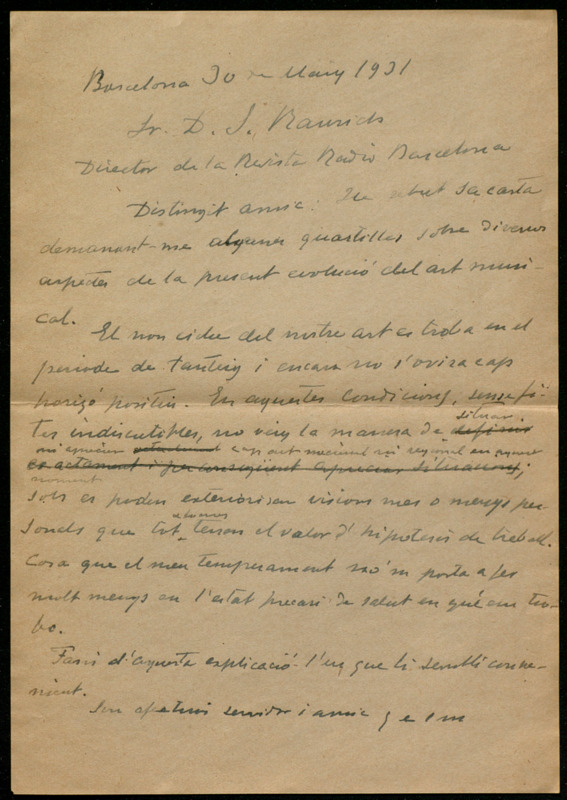 Barcelona 30 de Maig 1931
Sr. D. J. Raurich
Director de la Revista Radio Barcelona
Distingit amic: He rebut sa carta
demanant-me algunes quartilles sobre diversos
aspectes de la present evolució del art musi-
cal.
El nou cicle del nostre art es troba en el
periode de tanteig i encara no s'ovira cap
horizó positiu. En aquestes condicions, sense fi-
tes indiscutibles, no veig la manera de definir
situar
ni apreciar cap art nacional ni regional en aquest
exactament i per consegüent apreciar situacions;
moment
sols es poden exterioritzar visions mes o menys per-
sonals que tot
tenen el valor d'hipotesis de treball.
Cosa que el meu temperament no'm porta a fer
molt menys en l'estat precari de salut en qué em tro-
bo.
Fassi d'aquesta explicació l'us que li sembli conve-
nient.
Seu afectuos servidor i amic q e s m